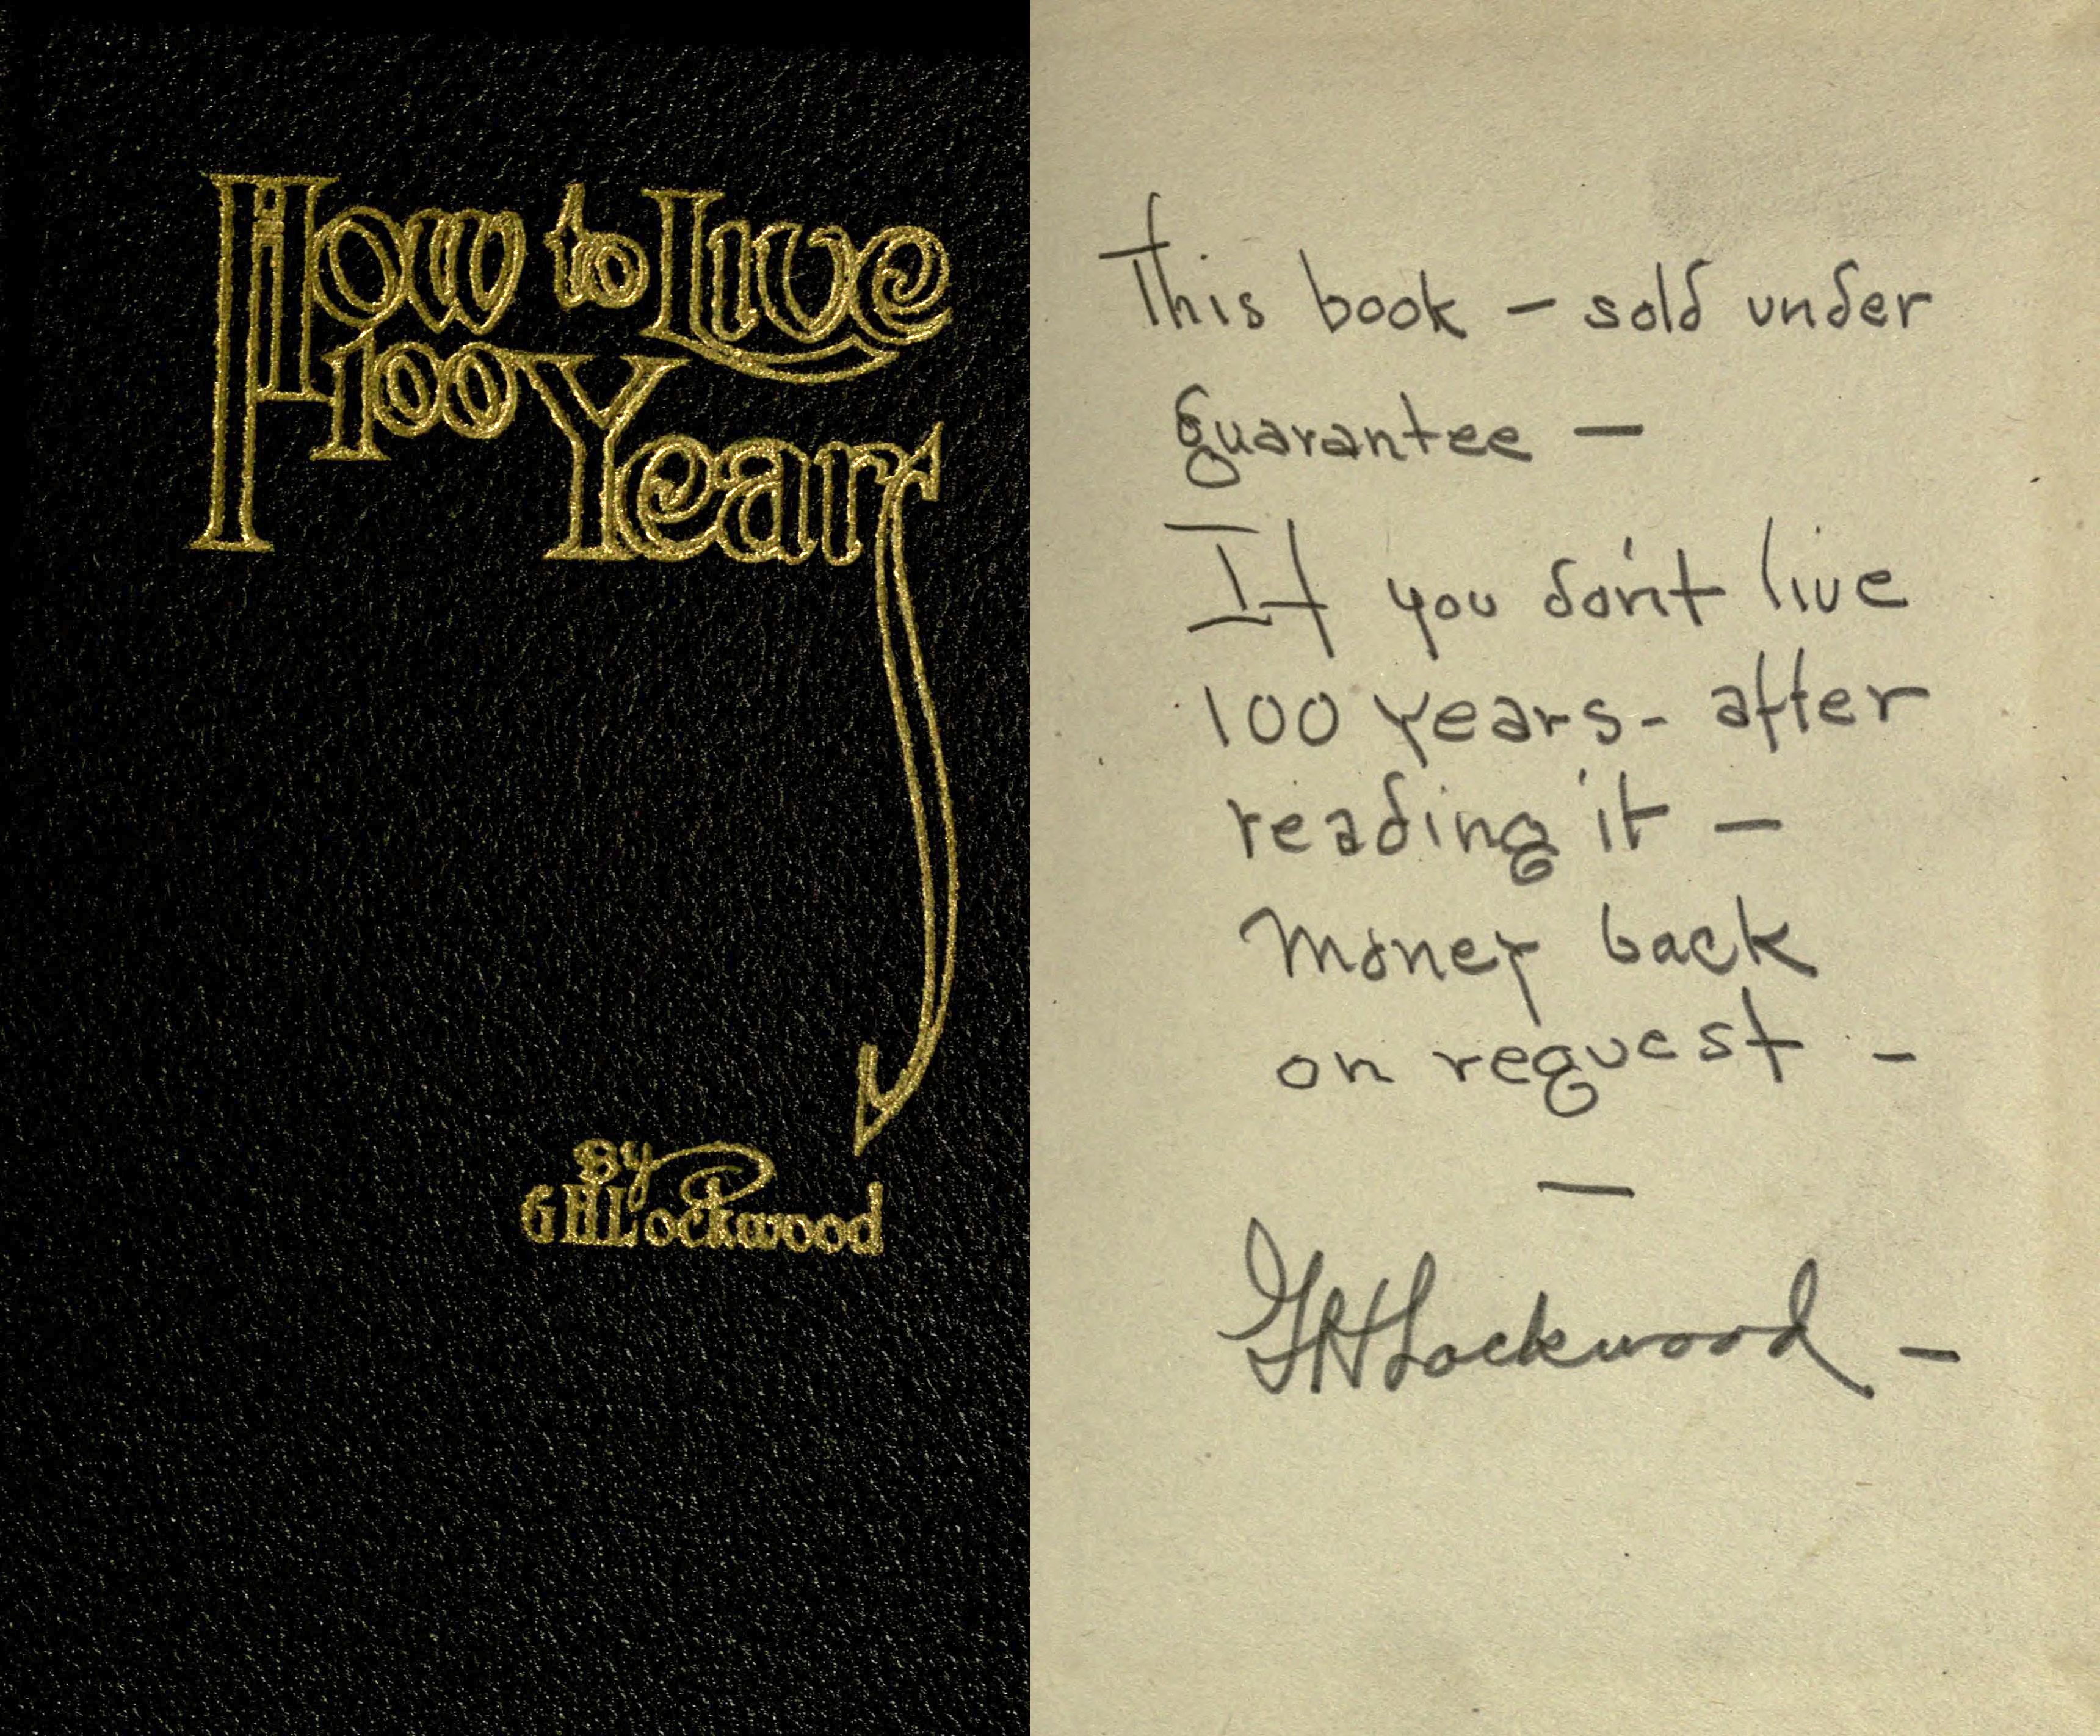 How to Live
100 Years
By
G H Lockwood
This book – sold under
guarantee –
If you don't live
100 years - after
reading it –
money back
on request -
—
G H Lockwood –